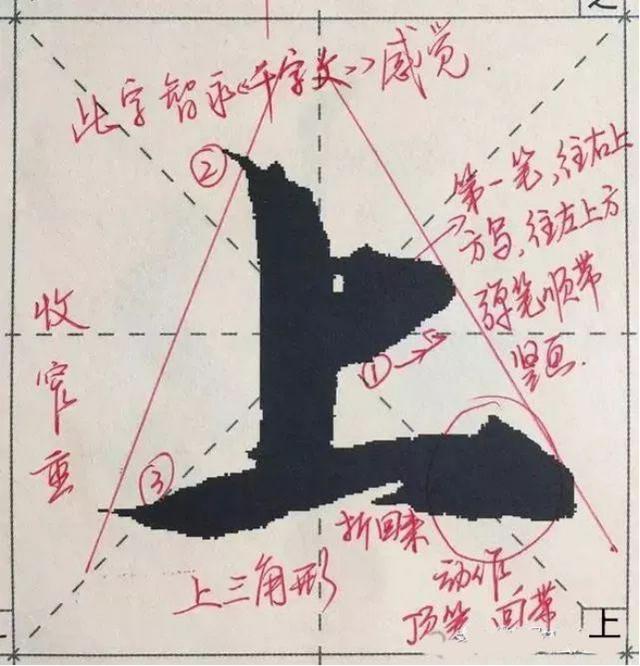 此字智永《千字文》感觉.
②
第一笔,往右上
方写,往左上方
弹笔顺带
竖画.
收
窄
重
上
①
③
折回来
上三角形
动作
顶笔 回带
上